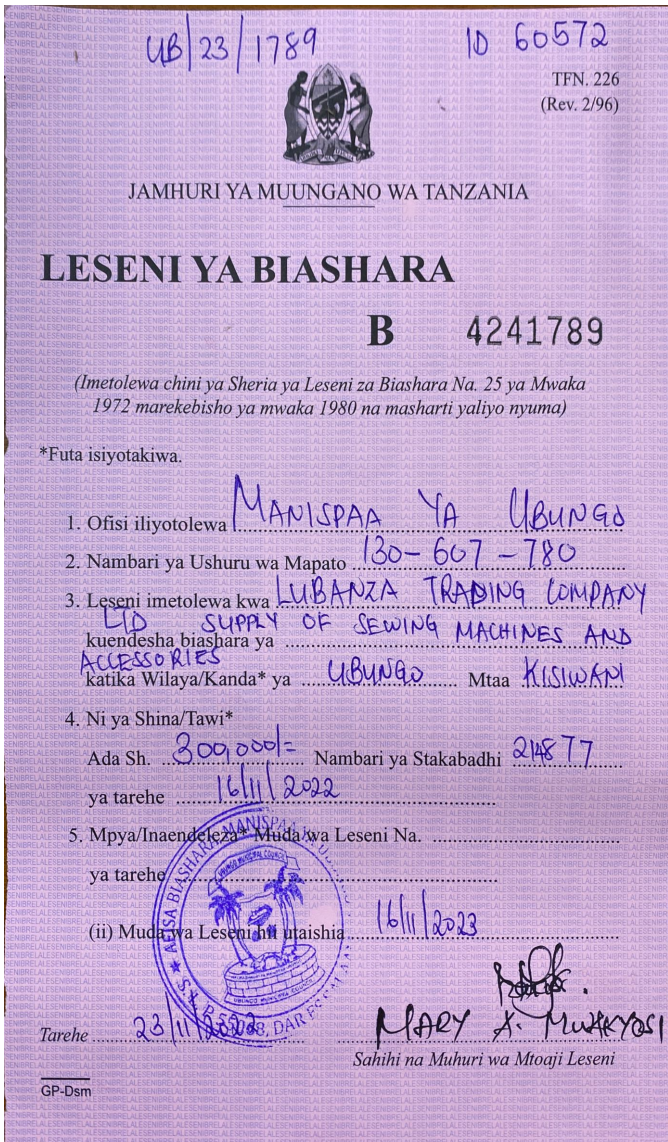 UB/23/1789 ID 60572
TFN. 226
(Rev. 2/96)
JAMHURI YA MUUNGANO WA TANZANIA
LESENI YA BIASHARA
B 4241789
(Imetolewa chini ya Sheria ya Leseni za Biashara Na. 25 ya Mwaka
1972 marekebisho ya mwaka 1980 na masharti yaliyo nyuma)
*Futa isiyotakiwa.
1. Ofisi iliyotolewa MANISPAA YA UBUNGO
2. Nambari ya Ushuru wa Mapato 130-607-780
3. Leseni imetolewa kwa LUBANZA TRADING COMPANY
LTD SUPPLY OF SEWING MACHINES AND
kuendesha biashara ya
ACCESSORIES
katika Wilaya/Kanda* ya UBUNGO Mtaa KISIWANI
4. Ni ya Shina/Tawi*
Ada Sh. 300,000/= Nambari ya Stakabadhi 214877
ya tarehe 16/11/2022
5. Mpya/Inaendeleza* Muda wa Leseni Na.
ya tarehe
(ii) Muda wa Leseni hii utaishia 16/11/2023
AFISA BIASHARA MANISPAA YA
UBUNGO MUNICIPAL COUNCIL
UBUNGO MUNICIPAL COUNCIL
DAR ES SALAAM
Tarehe 23/11/2022 MARY A. MWAKYOSI
Sahihi na Muhuri wa Mtoaji Leseni
GP-Dsm